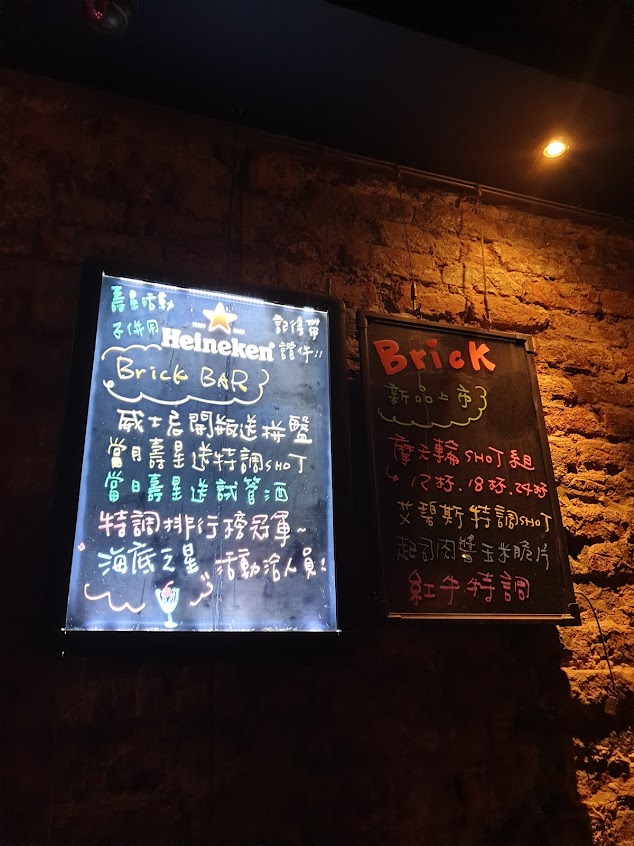 壽星活動
子併用
Heineken
記得帶
證件!!
Brick BAR
威士忌開瓶送拼盤
當月壽星送特調SHOT
當日壽星送試管酒
特調排行榜冠軍~
海底之星 活動洽人員!
Brick
新品上市
摩天輪SHOT組
↳12杯.18杯.24杯
艾碧斯特調SHOT
起司肉醬玉米脆片
紅牛特調